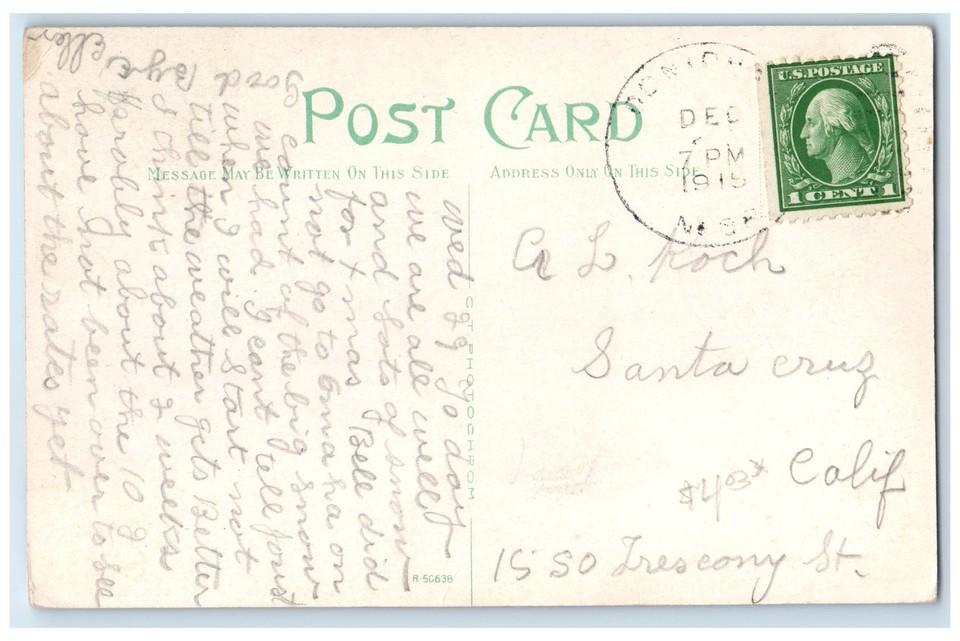 POST CARD
MESSAGE MAY BE WRITTEN ON THIS SIDE
ADDRESS ONLY ON THIS SIDE
DEC
7 PM
1915
U.S. POSTAGE
1 CENT 1
A L. Koch
Santa cruz
Calif
$4 03
1550 Trescony St.
C T PHOTOCHROM
R-50638
wed 29 To day
we are all well
and Lots of snow
for x mas Bell did
not go to Omaha on
count of the big snow
we had I cant tell Just
when I will start not
till the weather gets Better
I think about 2 weeks
Parobly about the 10 I
have not been over to see
about the rates yet
Good Bye